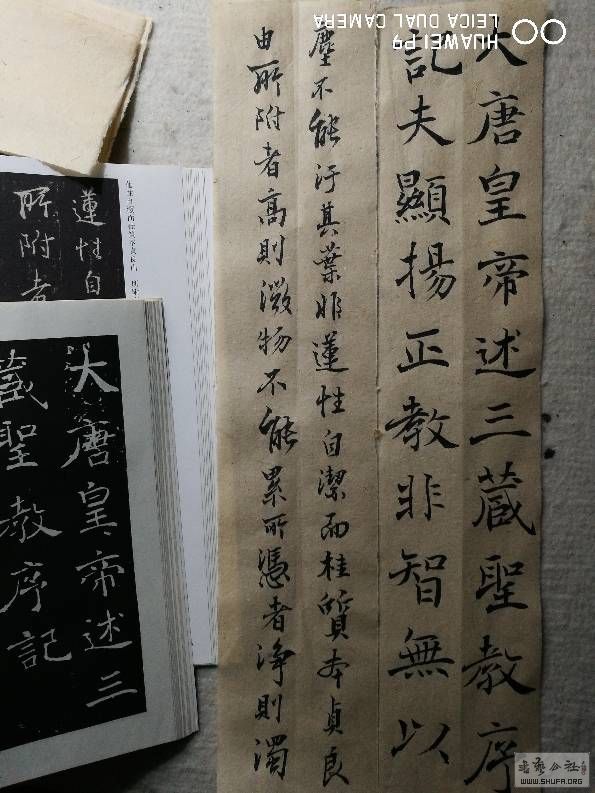 HUAWEI P9
LEICA DUAL CAMERA
大唐皇帝述三蔵聖教序
記夫顯揚正教非智無以
塵不能汙其葉非蓮性自潔而桂質本貞良
由所附者高則微物不能累所憑者淨則濁
蓮性自
所附者
大唐皇帝述三
蔵聖教序記
公社
WWW.SHUFA.ORG